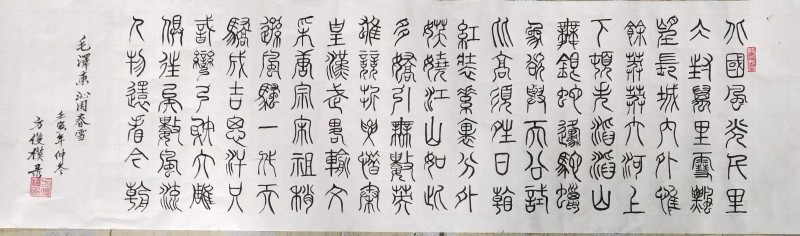 北國風光千里
冰封萬里雪飄
望長城內外惟
餘莽莽大河上
下頓失滔滔山
舞銀蛇原馳蠟
象欲與天公試
比高須晴日看
紅裝素裹分外
妖嬈江山如此
多嬌引無數英
雄競折腰惜秦
皇漢武略輸文
采唐宗宋祖稍
遜風騷一代天
驕成吉思汗只
識彎弓射大雕
俱往矣數風流
人物還看今朝
毛澤東沁园春雪
壬寅年仲冬
方俊樸录